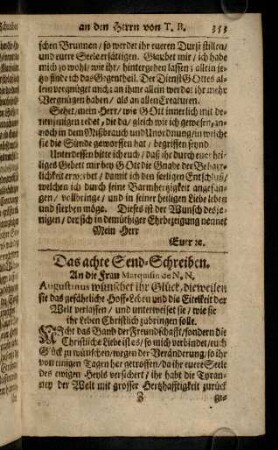 an den Herrn von T. R. 353
schen Brunnen / so werdet ihr eueren Durst stillen /
und eure Seele ersättigen. Glaubet mir / ich habe
mich so wohl / wie ihr / hintergehen lassen; allein je-
tzo finde ich das Gegentheil. Der Dienst GOttes al-
lein vergnüget mich; an ihme allein werdet ihr mehr
Vergnügen haben / als an allen Creaturen.
Sehet / mein Herr / wie GOtt innerlich mit de-
nenjenigen redet / die da / gleich wie ich gewesen / an-
noch in dem Mißbrauch und Unordnung / in welche
sie die Sünde geworffen hat / begriffen seynd.
Unterdessen bitte ich euch / daß ihr durch euer hei-
liges Gebett mir bey GOtt die Gnade der Beharr-
lichkeit erwerbet / damit ich den seeligen Entschluß /
welchen ich durch seine Barmhertzigkeit angefan-
gen / vollbringe / und in seiner heiligen Liebe leben
und sterben möge. Dieses ist der Wunsch desje-
nigen / der sich in demüthiger Ehrbezeigung nennet
Mein Herr
Euer ꝛc.
Das achte Send-Schreiben.
An die Frau Marquisin de N. N.
Augustinus wünschet ihr Glück / dieweilen
sie das gefährliche Hoff-Leben und die Eitelkeit der
Welt verlassen / und unterweiset sie / wie sie
ihr Leben Christlich zubringen solle.
Nicht das Band der Freundschafft / sondern die
Christliche Liebe ist es / so mich verbindet / euch
Glück zu wünschen / wegen der Veränderung / so ihr
von einigen Tagen her getroffen / da ihr euere Seele
des ewigen Heyls versichert / ihr habt die Tyran-
ney der Welt mit grosser Hertzhafftigkeit zurück
Z ge-